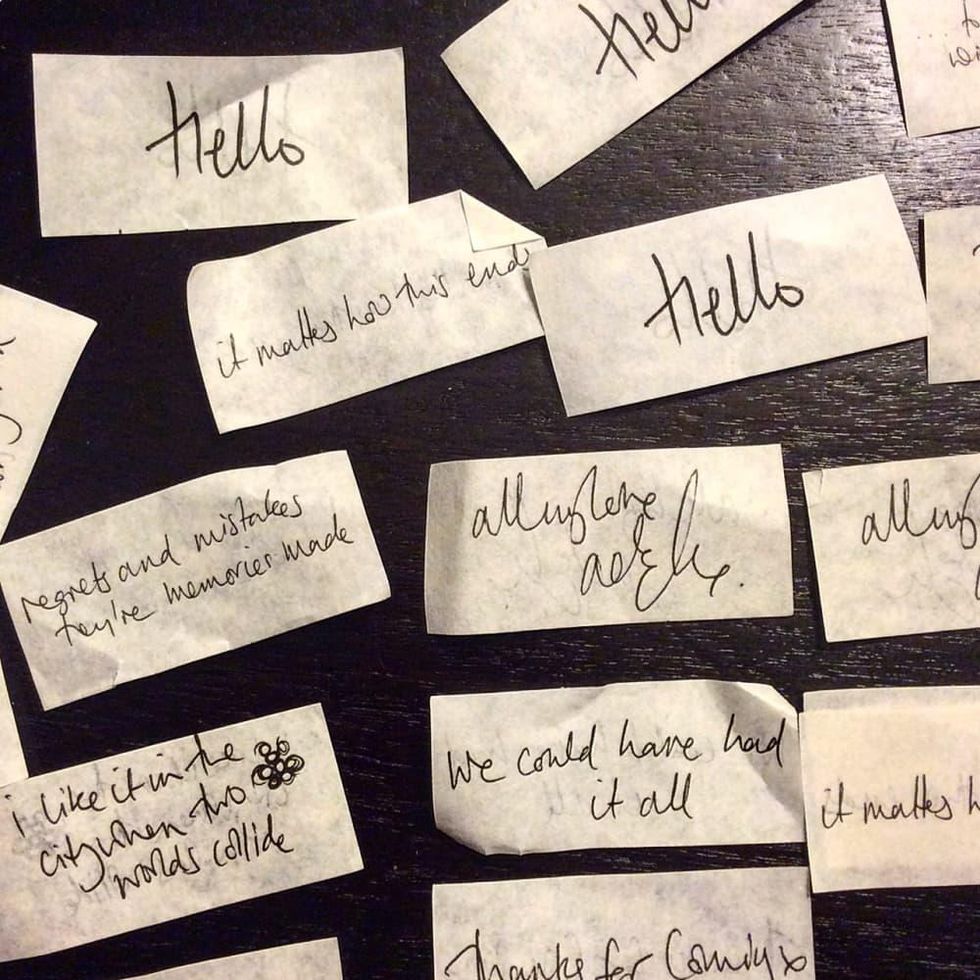 Hello
Hello
it mattes how this ends
Hello
regrets and mistakes
they're memories made
all my love
adele x.
all my
i like it in the
city when two
worlds collide
We could have had
it all
it mattes h
Thanks for Coming x